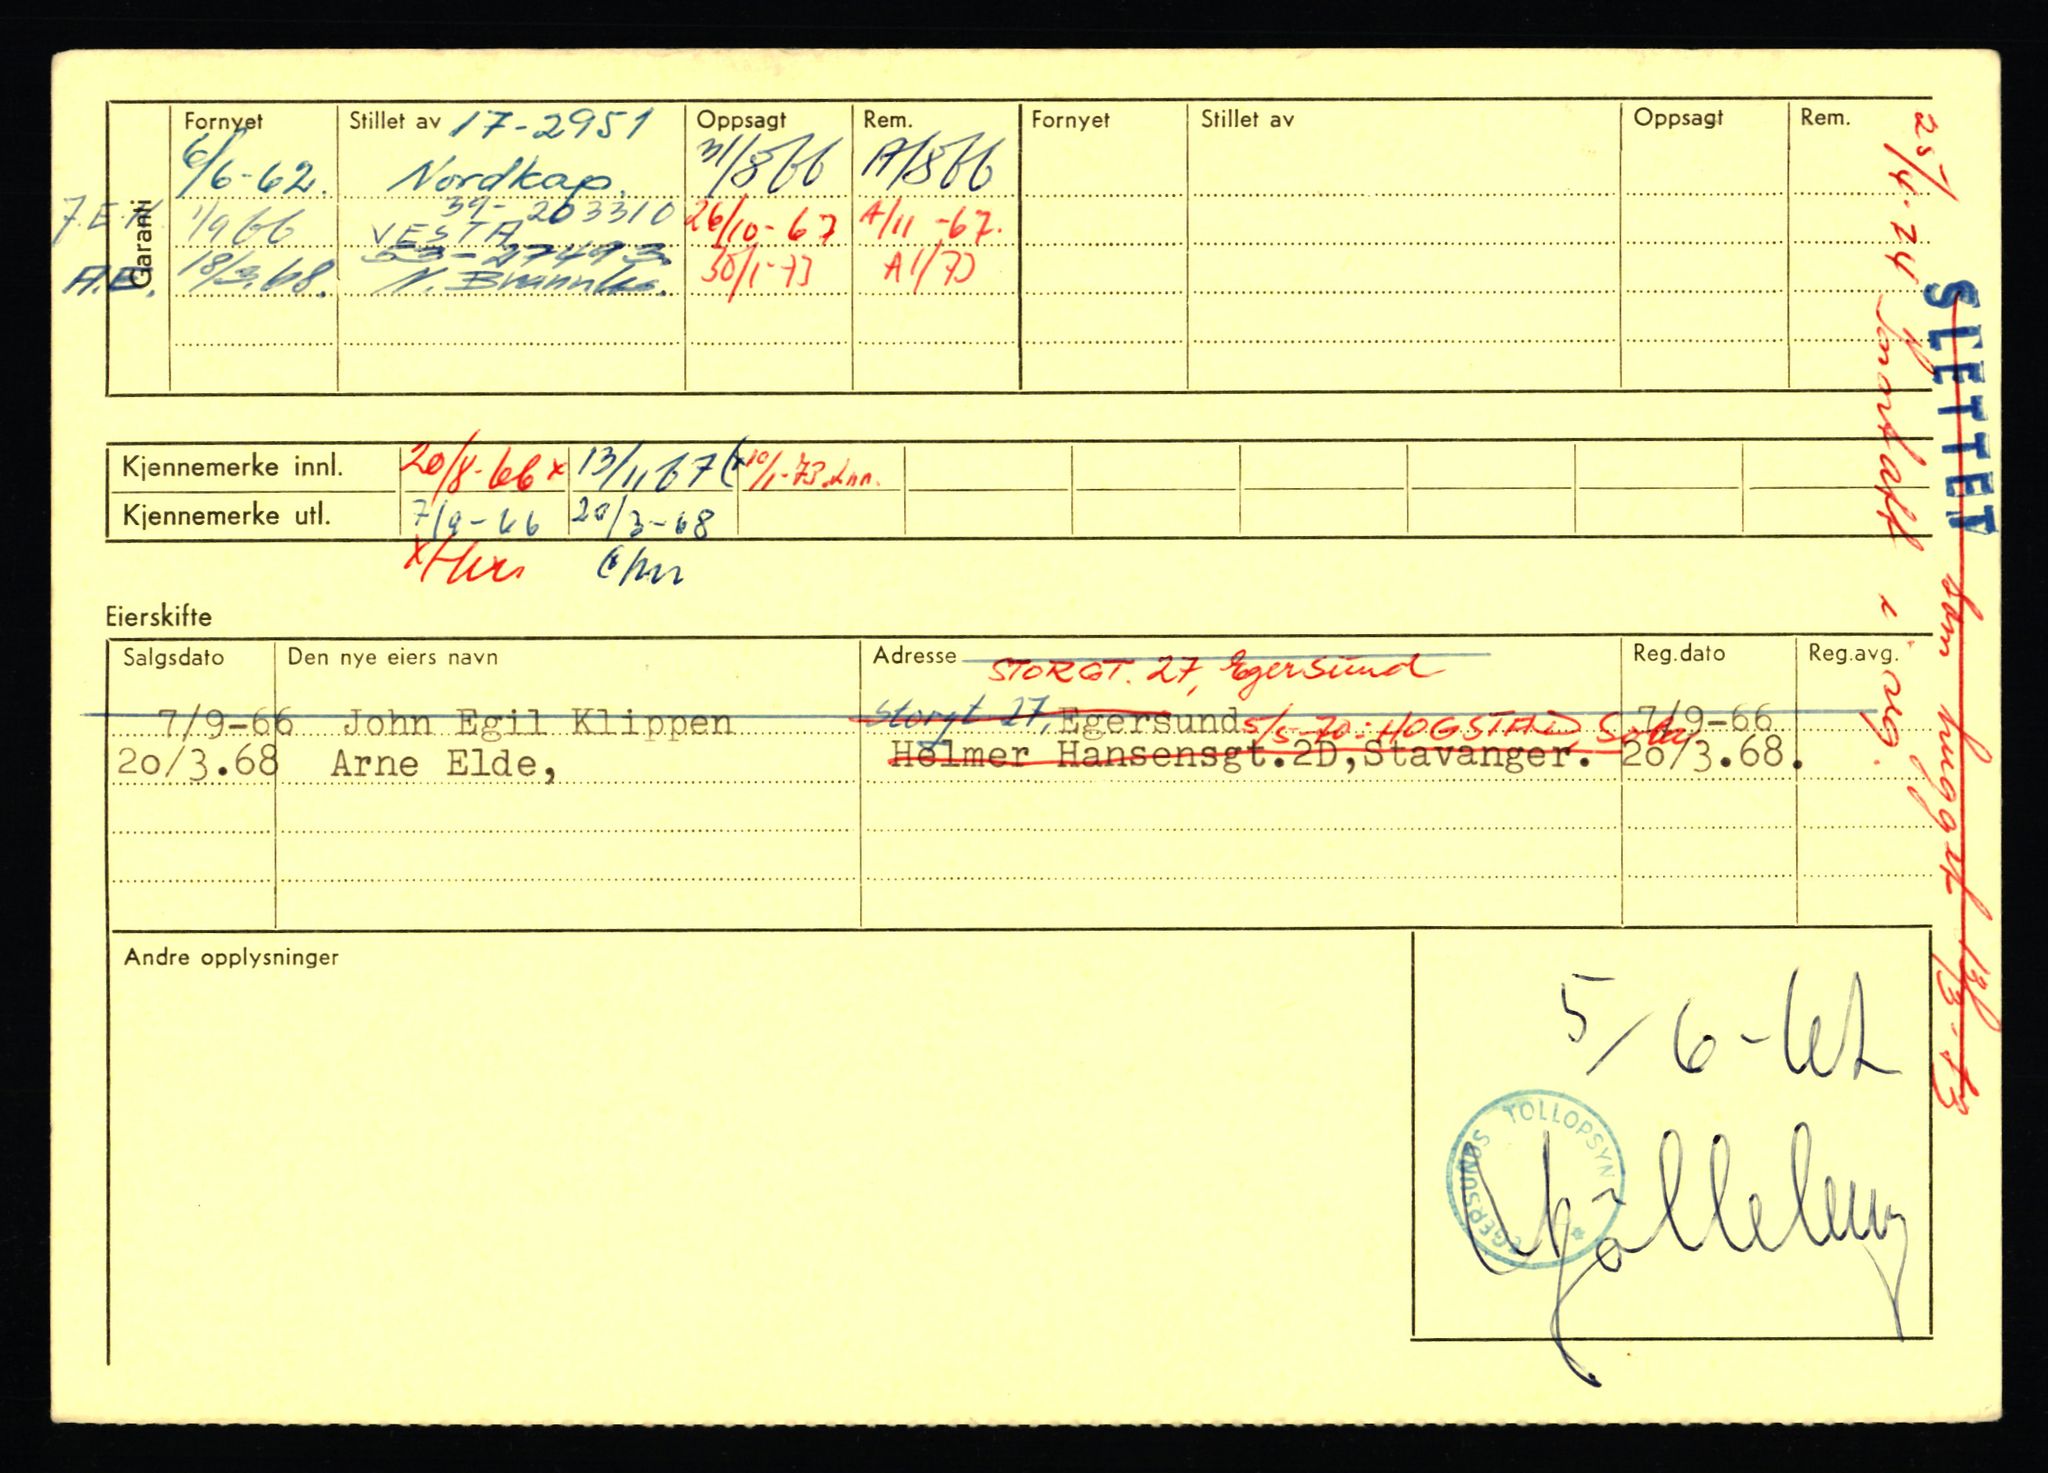 Garanti
Fornyet Stillet av Oppsagt Rem. Fornyet Stillet av Oppsagt Rem.
17-2951
6/6-62. Nordkap. 31/8 66 A/8 66
39-203310
1/9 66 VESTA 26/10-67 A/11-67.
53-27493
A.E. 18/3.68. N. 30/1-73 A 1/73
Kjennemerke innl. 20/8-66 x 13/11 67 (x 10/1-73.
Kjennemerke utl. 7/9-66 20/3-68
Eierskifte
Salgsdato Den nye eiers navn Adresse Reg.dato Reg.avg.
STORGT. 27, Egersund
7/9-66 John Egil Klippen Storgt 27, Egersund 7/9-66
5/5-70: HOGSTAD, Sola
20/3.68 Arne Elde, Helmer Hansensgt.2D,Stavanger. 20/3.68.
Andre opplysninger
5/6-62
EGERSUNDS TOLLOPSYN
25/4-74 innsatt i reg.
SLETTET som hugget 13/3-73